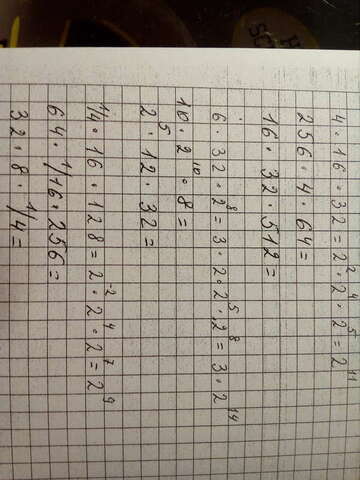 4 · 16 · 32 = 2² · 2⁴ · 2⁵ = 2¹¹
256 · 4 · 64 =
16 · 32 · 512 =
6 · 32 · 2⁸ = 3 · 2 · 2⁵ · 2⁸ = 3 · 2¹⁴
10 · 2¹⁰ · 8 =
2⁵ · 12 · 32 =
1/4 · 16 · 128 = 2⁻² · 2⁴ · 2⁷ = 2⁹
64 · 1/16 · 256 =
32 · 8 · 1/4 =